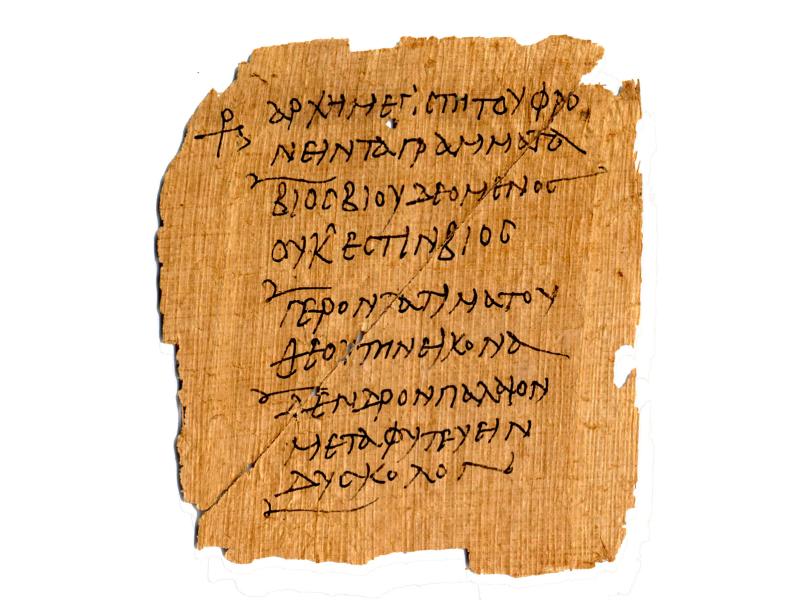 ⳨ ΑΡΧΗΜΕΓΙСΤΗΤΟΥΦΡΟ
ΝΕΙΝΤΑΓΡΑΜΜΑΤΑ
ΒΙΟСΒΙΟΥΔΕΟΜΕΝΟС
ΟΥΚΕСΤΙΝΒΙΟС
ΓΕΡΟΝΤΑΤΙΜΑΤΟΥ
ΘΕΟΥΤΗΝΕΙΚΟΝΑ
ΔΕΝΔΡΟΝΠΑΛΑΙΟΝ
ΜΕΤΑΦΥΤΕΥΕΙΝ
ΔΥСΚΟΛΟΝ